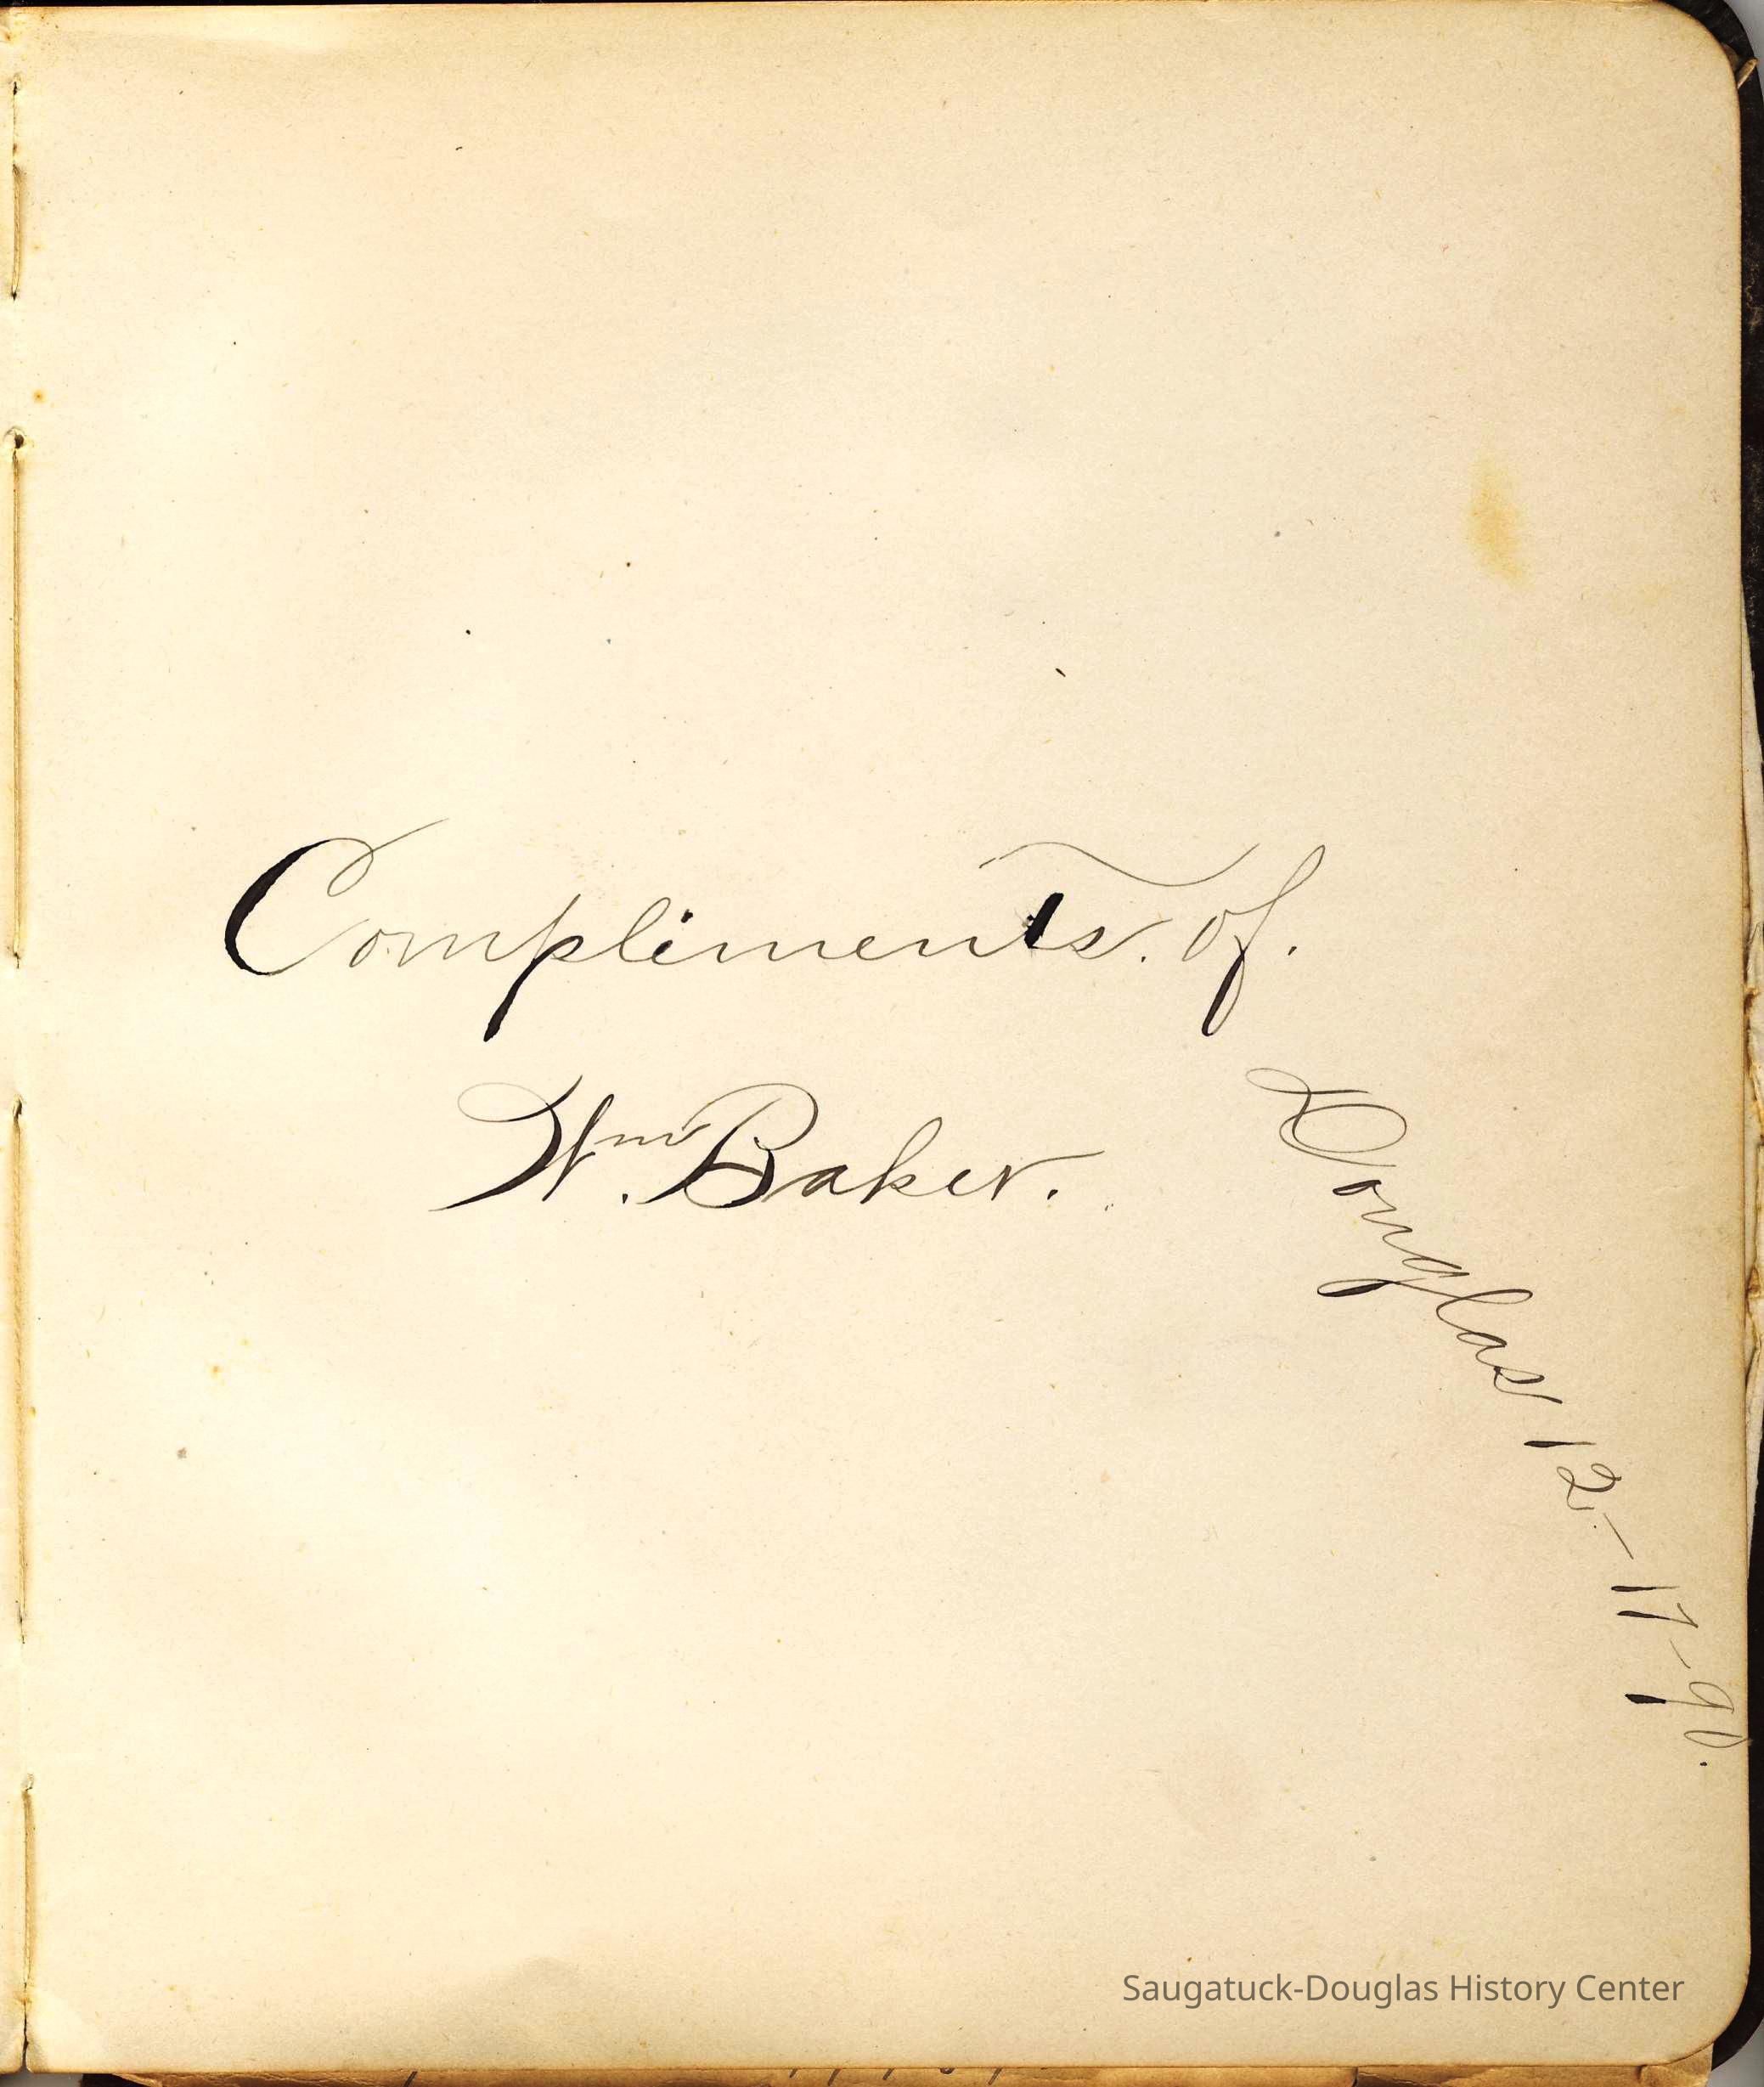 Compliments. of.
Wm. Baker.
Douglas 12-17-90.
Saugatuck-Douglas History Center